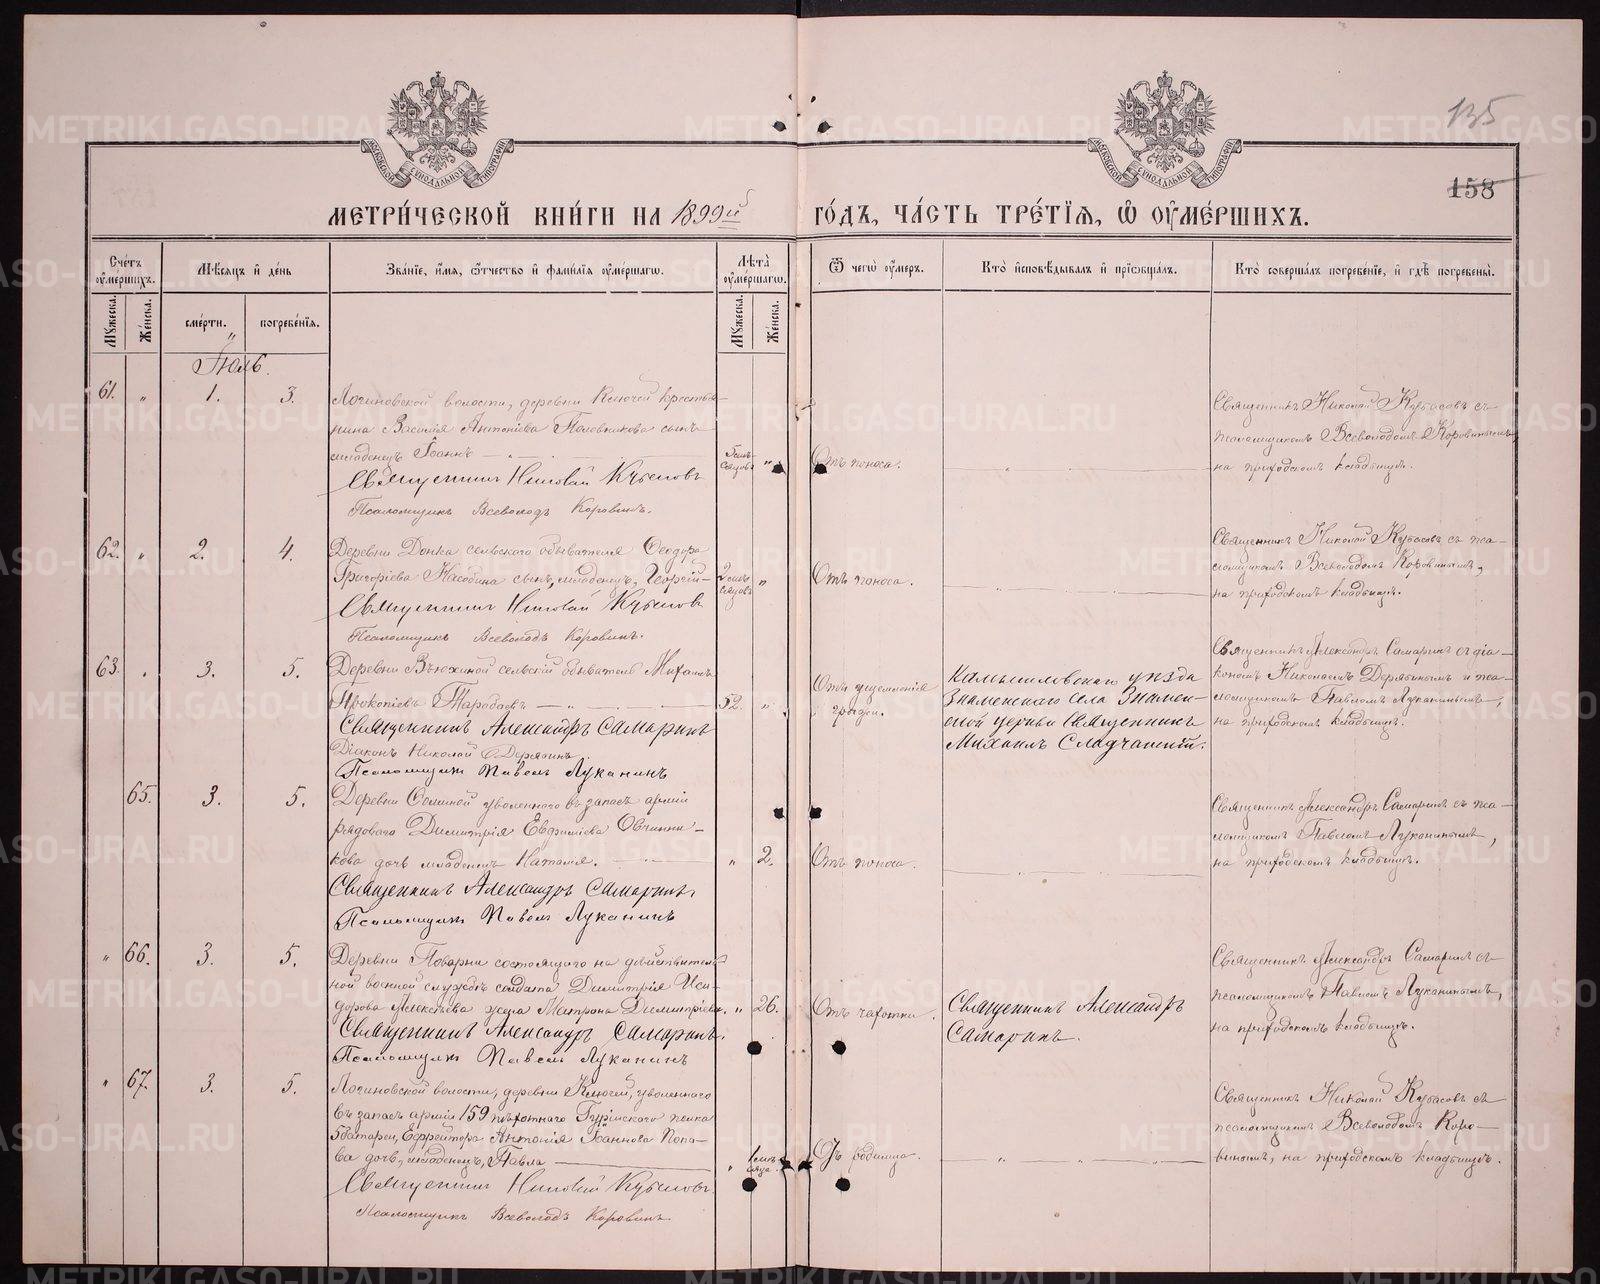 135
158
МЕТРИ́ЧЕСКОЙ КНИ́ГИ НА 1899й
ГО́ДЪ, ЧА́СТЬ ТРЕ́ТІѦ, Ѿ ОУМЕ́РШИХЪ.
Сче́тъ оуме́ршихъ.
Мꙋжеска.
Же́нска.
Мѣ́сяцъ и де́нь
сме́рти.
погребе́нїѧ.
Зва́нїе, и́мѧ, ѻ҆́тчество и фами́лїѧ оуме́ршагѡ.
Лѣ́та оуме́ршагѡ.
Мꙋжеска.
Же́нска.
Ѿ чегѡ̀ оу́меръ.
Кто̀ и҆сповѣ́дывалъ и҆ прїѡбща́лъ.
Кто̀ соверша́лъ погребе́нїе, и҆ гдѣ̀ погребены̀.
Іюль.
61. " 1. 3.
Логиновской волости, деревни Ключей крестья-
нина Василія Антоніева Половникова сынъ
младенецъ Іоаннъ
Священникъ Николай Кубасовъ
Псаломщикъ Всеволодъ Коровинъ.
5 мѣ-
сяцовъ "
Отъ поноса.
Священникъ Николай Кубасовъ съ
псаломщикомъ Всеволодомъ Коровинымъ,
на приходскомъ кладбищѣ.
62. " 2. 4.
Деревни Донка сельскаго обывателя Ѳеодора
Григоріева сынъ, младенецъ, Георгій
Священникъ Николай Кубасовъ
Псаломщикъ Всеволодъ Коровинъ.
2 мѣ-
сяцовъ "
Отъ поноса.
Священникъ Николай Кубасовъ съ пса-
ломщикомъ Всеволодомъ Коровинымъ,
на приходскомъ кладбищѣ.
63. " 3. 5.
Деревни Вьюхиной сельскій обыватель Михаилъ
Прокопіевъ Тарабаевъ
Священникъ Александръ Самаринъ
Діаконъ Николай Дерябинъ.
Псаломщикъ Павелъ Луканинъ
52. "
Отъ ущемленія
грыжи.
Камышловскаго уѣзда
Знаменскаго села Знамен-
ской церкви Священникъ
Михаилъ
Священникъ Александръ Самаринъ съ діа-
кономъ Николаемъ Дерябинымъ и пса-
ломщикомъ Павломъ Луканинымъ,
на приходскомъ кладбищѣ.
65. 3. 5.
Деревни Сёминой уволеннаго въ запасъ арміи
рядоваго Димитрія Евфиміева Овчинни-
кова дочь младенецъ Наталія.
Священникъ Александръ Самаринъ.
Псаломщикъ Павелъ Луканинъ
" 2.
Отъ поноса.
Священникъ Александръ Самаринъ съ пса-
ломщикомъ Павломъ Луканинымъ,
на приходскомъ кладбищѣ.
" 66. 3. 5.
Деревни Поварни состоящаго на дѣйствитель-
ной военной службѣ солдата Димитрія Иси-
дорова Алексѣева жена Матрона Димитріева.
Священникъ Александръ Самаринъ.
Псаломщикъ Павелъ Луканинъ
" 26.
Отъ чахотки.
Священникъ Александръ
Самаринъ.
Священникъ Александръ Самаринъ съ
псаломщикомъ Павломъ Луканинымъ,
на приходскомъ кладбищѣ.
" 67. 3. 5.
Логиновской волости, деревни Ключей, уволеннаго
въ запасъ арміи 159 пѣхотнаго Гурійскаго полка
5 батареи, Ефрейтора Антонія Іоаннова Попо-
ва дочь, младенецъ, Павла
Священникъ Николай Кубасовъ
Псаломщикъ Всеволодъ Коровинъ
" 1 мѣ-
сяца
Отъ родимца.
Священникъ Николай Кубасовъ съ
псаломщикомъ Всеволодомъ Коро-
винымъ, на приходскомъ кладбищѣ.